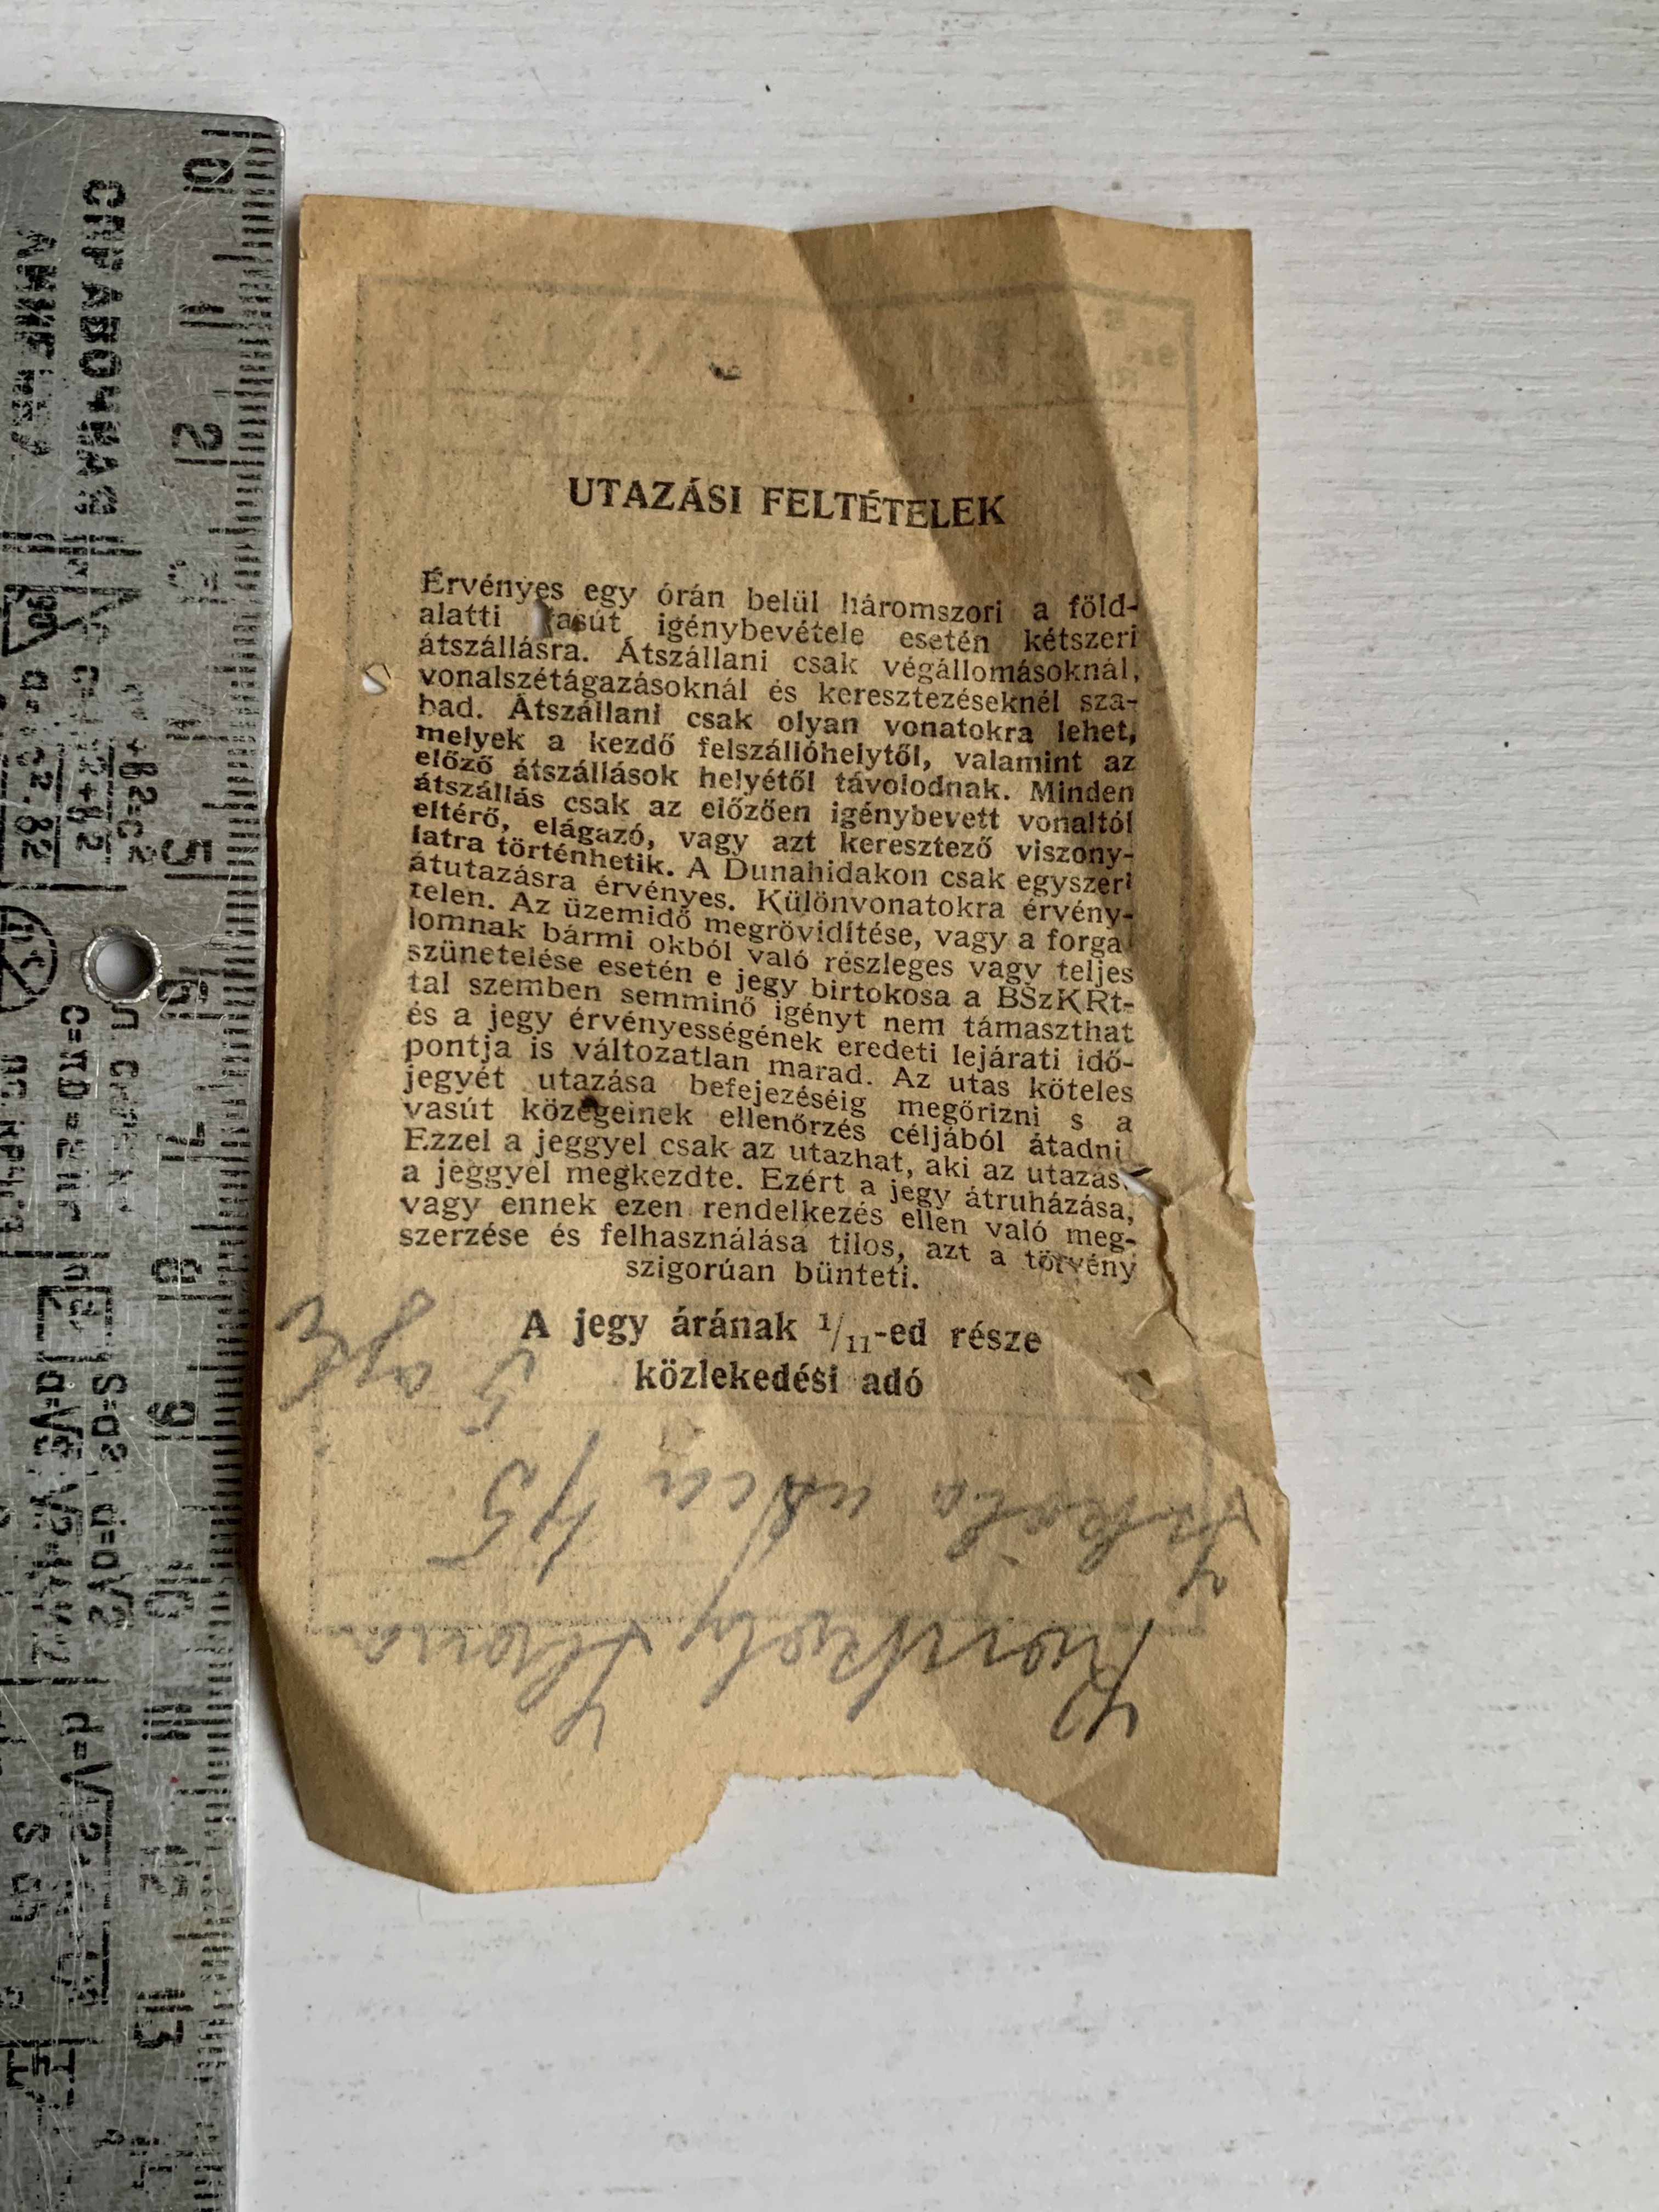 UTAZÁSI FELTÉTELEK
Érvényes egy órán belül háromszori a föld-
alatti vasút igénybevétele esetén kétszeri
átszállásra. Átszállani csak végállomásoknál,
vonalszétágazásoknál és keresztezéseknél sza-
bad. Átszállani csak olyan vonatokra lehet,
melyek a kezdő felszállóhelytől, valamint az
előző átszállások helyétől távolodnak. Minden
átszállás csak az előzően igénybevett vonaltól
eltérő, elágazó, vagy azt keresztező viszony-
latra történhetik. A Dunahidakon csak egyszeri
átutazásra érvényes. Különvonatokra érvény-
telen. Az üzemidő megrövidítése, vagy a forga-
lomnak bármi okból való részleges vagy teljes
szünetelése esetén e jegy birtokosa a BSzKRt-
tal szemben semminő igényt nem támaszthat
és a jegy érvényességének eredeti lejárati idő-
pontja is változatlan marad. Az utas köteles
jegyét utazása befejezéséig megőrizni s a
vasút közegeinek ellenőrzés céljából átadni
Ezzel a jeggyel csak az utazhat, aki az utazást
a jeggyel megkezdte. Ezért a jegy átruházása,
vagy ennek ezen rendelkezés ellen való meg-
szerzése és felhasználása tilos, azt a törvény
szigorúan bünteti.
A jegy árának 1/11-ed része
közlekedési adó
Ilona
utca 45
5
0
СПРАВОЧНАЯ
1
2
3
4
5
6
7
8
9
10
11
12
13